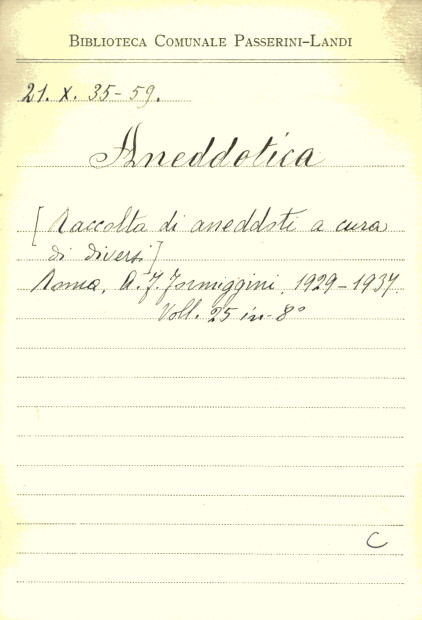 BIBLIOTECA COMUNALE PASSERINI-LANDI
21. X. 35-59.
Aneddotica
[Raccolta di aneddoti a cura
di diversi]
Roma, A. F. Formiggini, 1929-1937.
Voll. 25 in-8°
C